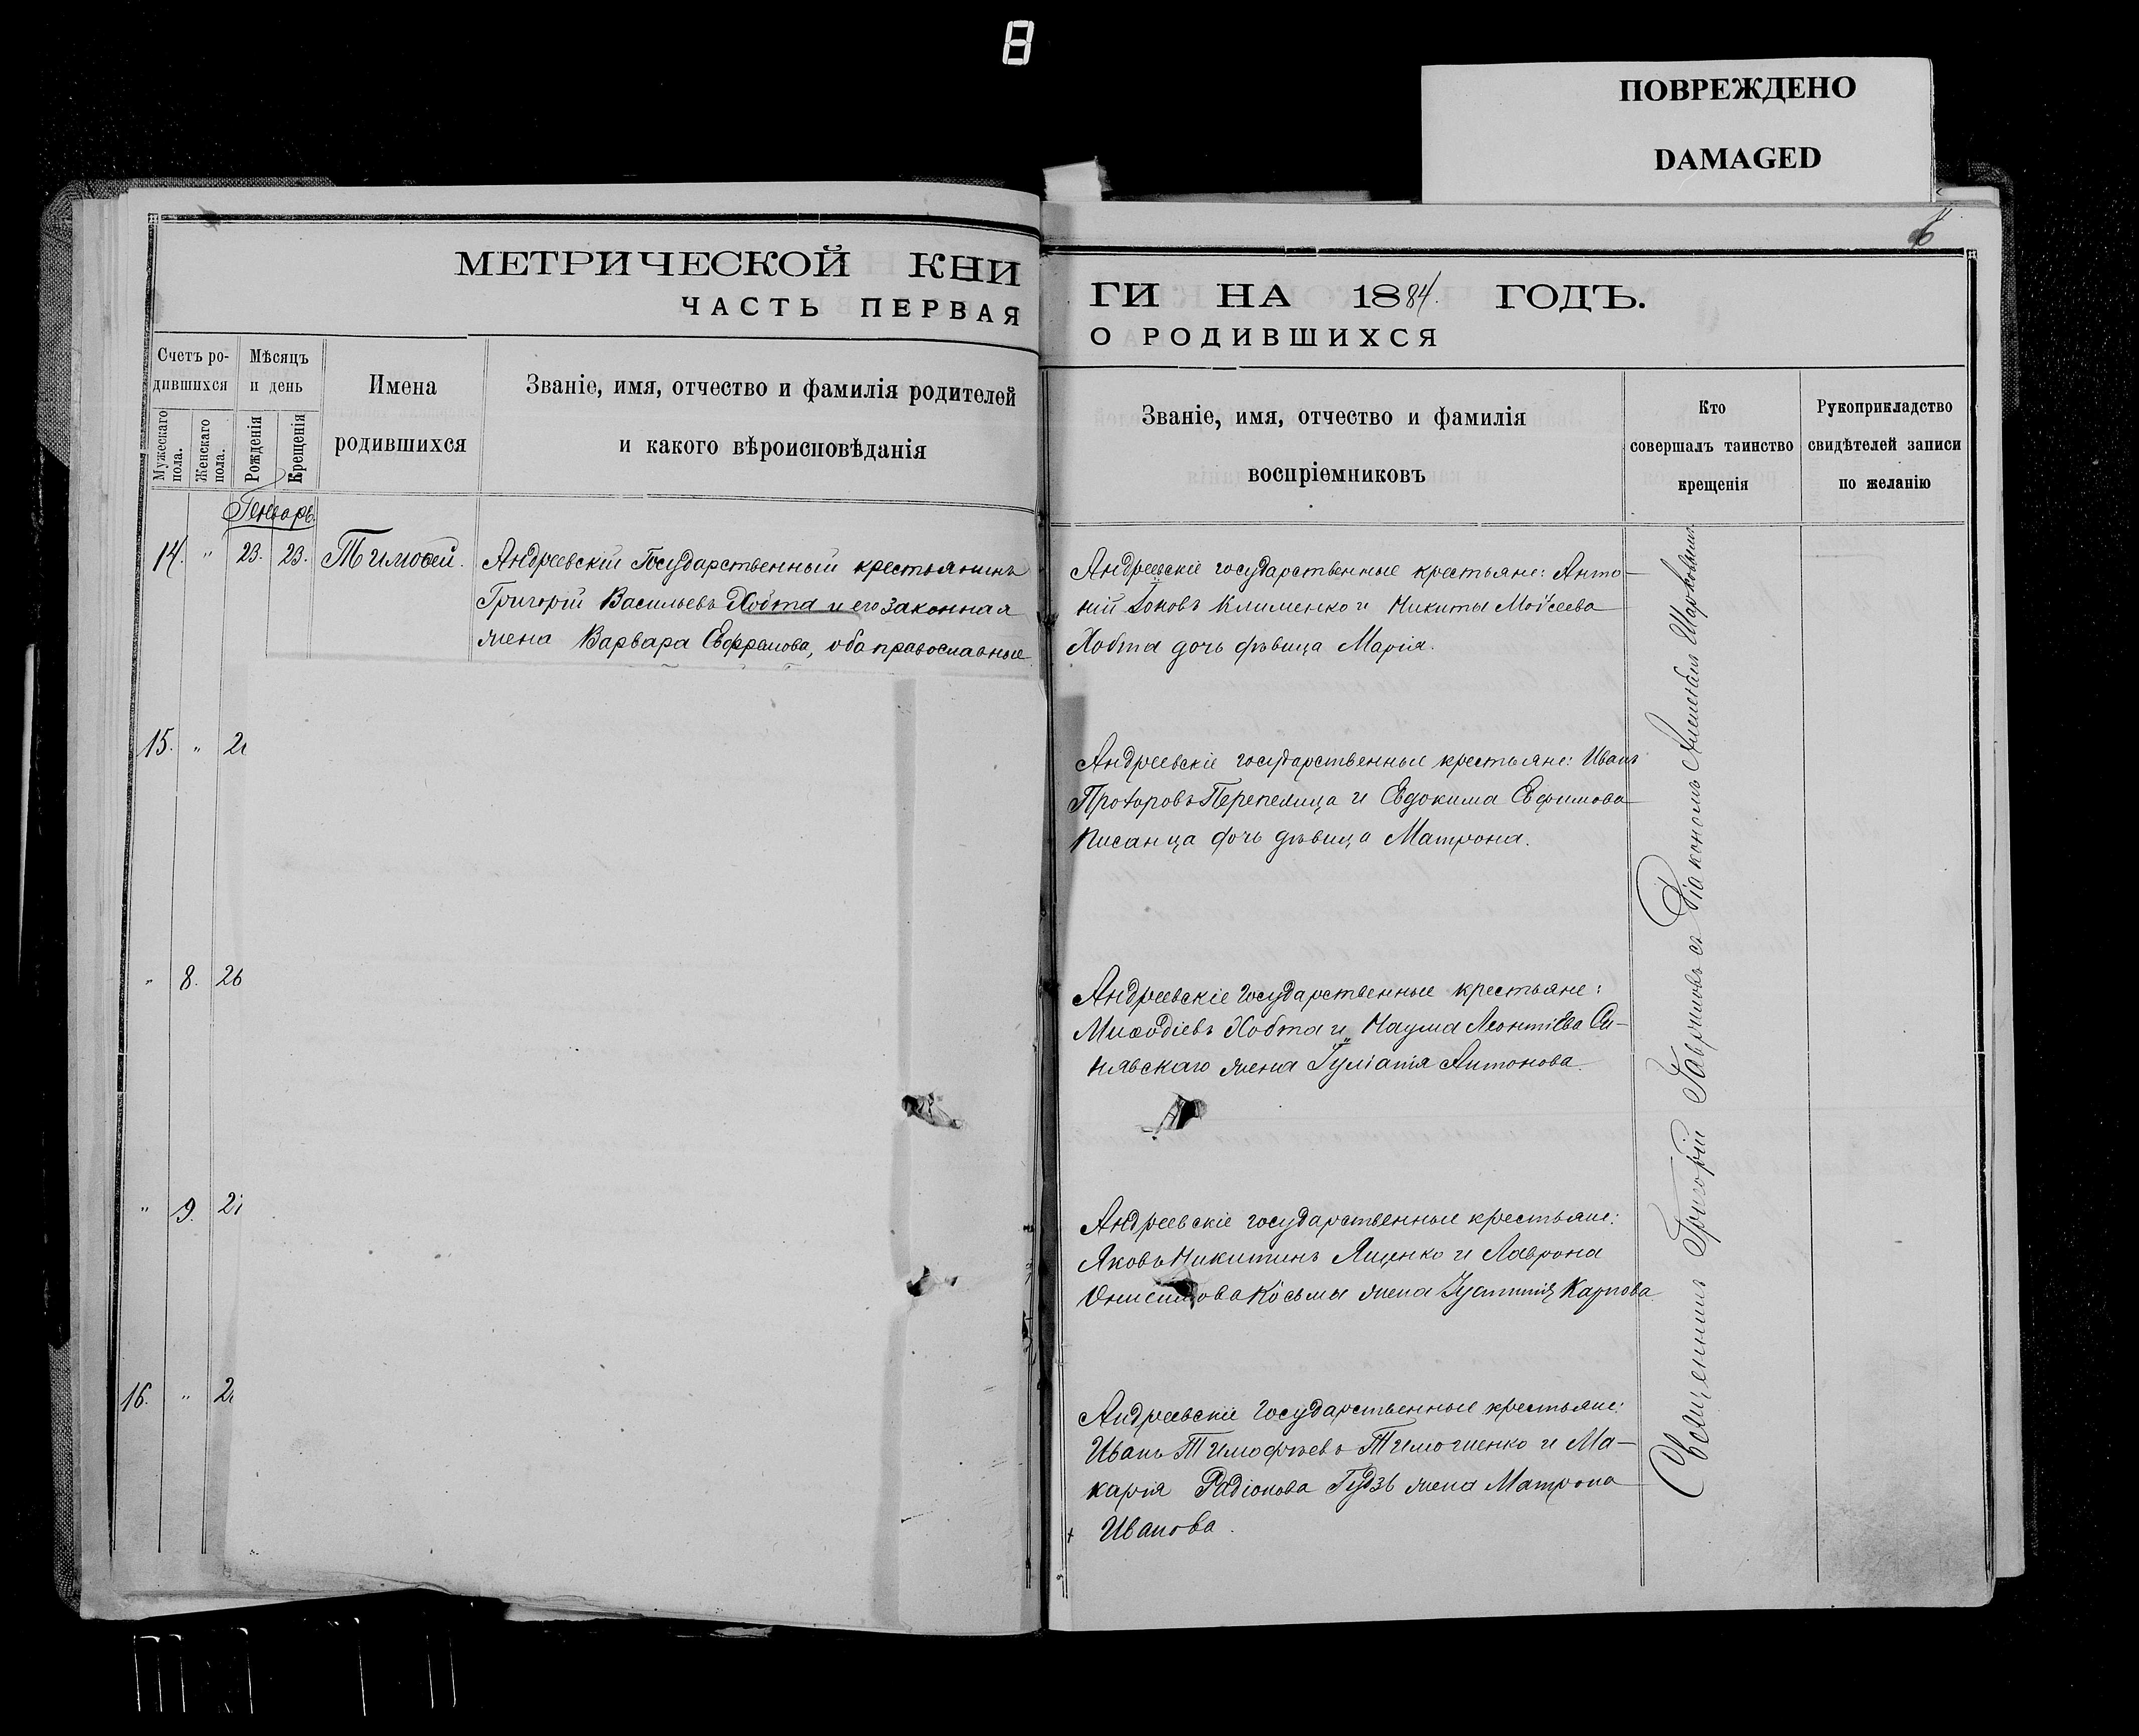 8
ПОВРЕЖДЕНО
DAMAGED
6
МЕТРИЧЕСКОЙ КНИ
ЧАСТЬ ПЕРВАЯ
Счетъ ро-
дившихся
Мужескаго пола.
Женскаго пола.
Мѣсяцъ
и день
Рожденія
Крещенія
Имена
родившихся
Званіе, имя, отчество и фамилія родителей
и какого вѣроисповѣданія
Генварь
14. " 23. 23. Тимоѳей.
Андреевскій Государственный крестьянинъ
Григорій Васильевъ Хобта и его законная
жена Варвара Евфремова, оба православные
15. " 2
" 8. 26
" 9. 2
16. " 2
ГИ НА 1884. ГОДЪ.
О РОДИВШИХСЯ
Званіе, имя, отчество и фамилія
воспріемниковъ
Кто
совершалъ таинство
крещенія
Рукоприкладство
свидѣтелей записи
по желанію
Андреевскіе государственные крестьяне: Анто-
ній Іововъ Клименко и Никиты Моѵсеева
Хобта дочь дѣвица Марія.
Андреевскіе государственные крестьяне: Иванъ
Прохоровъ Перепелица и Евдокима Ефимова
Писанца дочь дѣвица Матрона.
Андреевскіе государственные крестьяне:
Меѳодіевъ Хобта и Наума Леонтіева Си-
нявскаго жена Іуліанія Антонова.
Андреевскіе государственные крестьяне:
Яковъ Никитинъ Яценко и Лаврона
Онисимова Косьмы жена Іустинія Карпова
Андреевскіе государственные крестьяне:
Иванъ Тимофѣевъ Тимошенко и Ма-
карія Радіонова Гудзь жена Матрона
Иванова.
Священникъ Григорій Гавриловъ съ Діакономъ Алексѣемъ